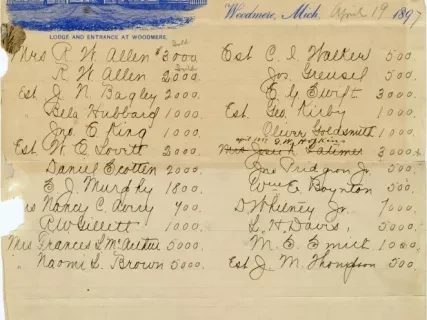 LODGE AND ENTRANCE AT WOODMERE.
Woodmere, Mich. April 19 1897
Mrs R W Allen $3000.
R W Allen 2000.
Est J N Bagley 2000
" Bela Hubbard 1000
Jno E King 1000.
Est. W E Lovitt 2000.
Daniel Scotten 2000.
E J Murphy 1800.
Mrs Nancy C. Avery 700
R W Gillett 1000.
Mrs Frances S McArthur 5000.
" Naomi L. Brown 5000.
Est C. I Walker 500.
Jos. Greusel 500.
E G Swift 3000.
Est. Geo Kirby 1000.
Olivr Goldsmith 1000.
April 1899 Hopkins
Mrs Latimer 3000.
Jno Pridgeon Jr 500.
Wm A. Boynton 500.
D Whitney Jr. 7000.
L. H. Davis, 5000.
M. E Smith 1000.
Est J. M. Thompson 500.